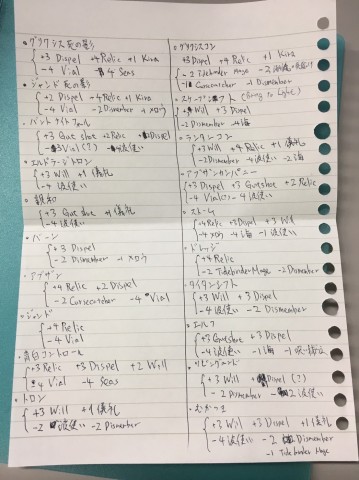 ・グリクシス死の影
+3 Dispel +4 Relic +1 Kira
-4 Vial -4 Seas
・ジャンド死の影
+2 Dispel +4 Relic +1 Kira
-4 Vial -2 Dismember -1 メロウ
・バントナイトフォール
+3 Gut shot +2 Relic
-3 Vial(?) -4 波使い
・エルドラージトロン
+3 Will +1 儀礼
-4 波使い
・親和
+3 Gut shot +1 儀礼
-4 波使い
・バーン
+3 Dispel
-2 Dismember -1 メロウ
・アブザン
+4 Relic +2 Dispel
-2 Cursecatcher -4 Vial
・ジャンド
+4 Relic
-4 Vial
・青白コントロール
+3 Relic +3 Dispel +2 Will
-4 Vial -4 Seas
・トロン
+3 Will +1 儀礼
-2 波使い -2 Dismember
・グリクシスコン
+3 Dispel +4 Relic +1 Kira
-2 Tidebinder Mage -2
-1 Cursecatcher -1 Dismember
・スケープシフト (Bring to Light)
+3 Will +3 Dispel
-2 Dismember -4 海
・ランタンコン
+3 Will +4 Relic +1 儀礼
-2 Dismember -4 波使い -2 海
・アブザンカンパニー
+3 Dispel +3 Gutshot +2 Relic
-4 Vial -4 波使い
・ストーム
+4 Relic +3 Dispel +3 Will
-4 メロウ -4 海 -1 波使い
・ドレッジ
+4 Relic
-2 Tidebinder Mage -2 Dismember
・タイタンシフト
+3 Will +3 Dispel
-4 波使い -2 Dismember
・エルフ
+3 Gutshot +3 Dispel
-4 波使い -1 海
・リビングエンド
+3 Will +Dispel (?)
-2 Dismember -2 波使い
・むかつき
+3 Will +3 Dispel +1 儀礼
-4 波使い -2 Dismember
-1 Tidebinder Mage